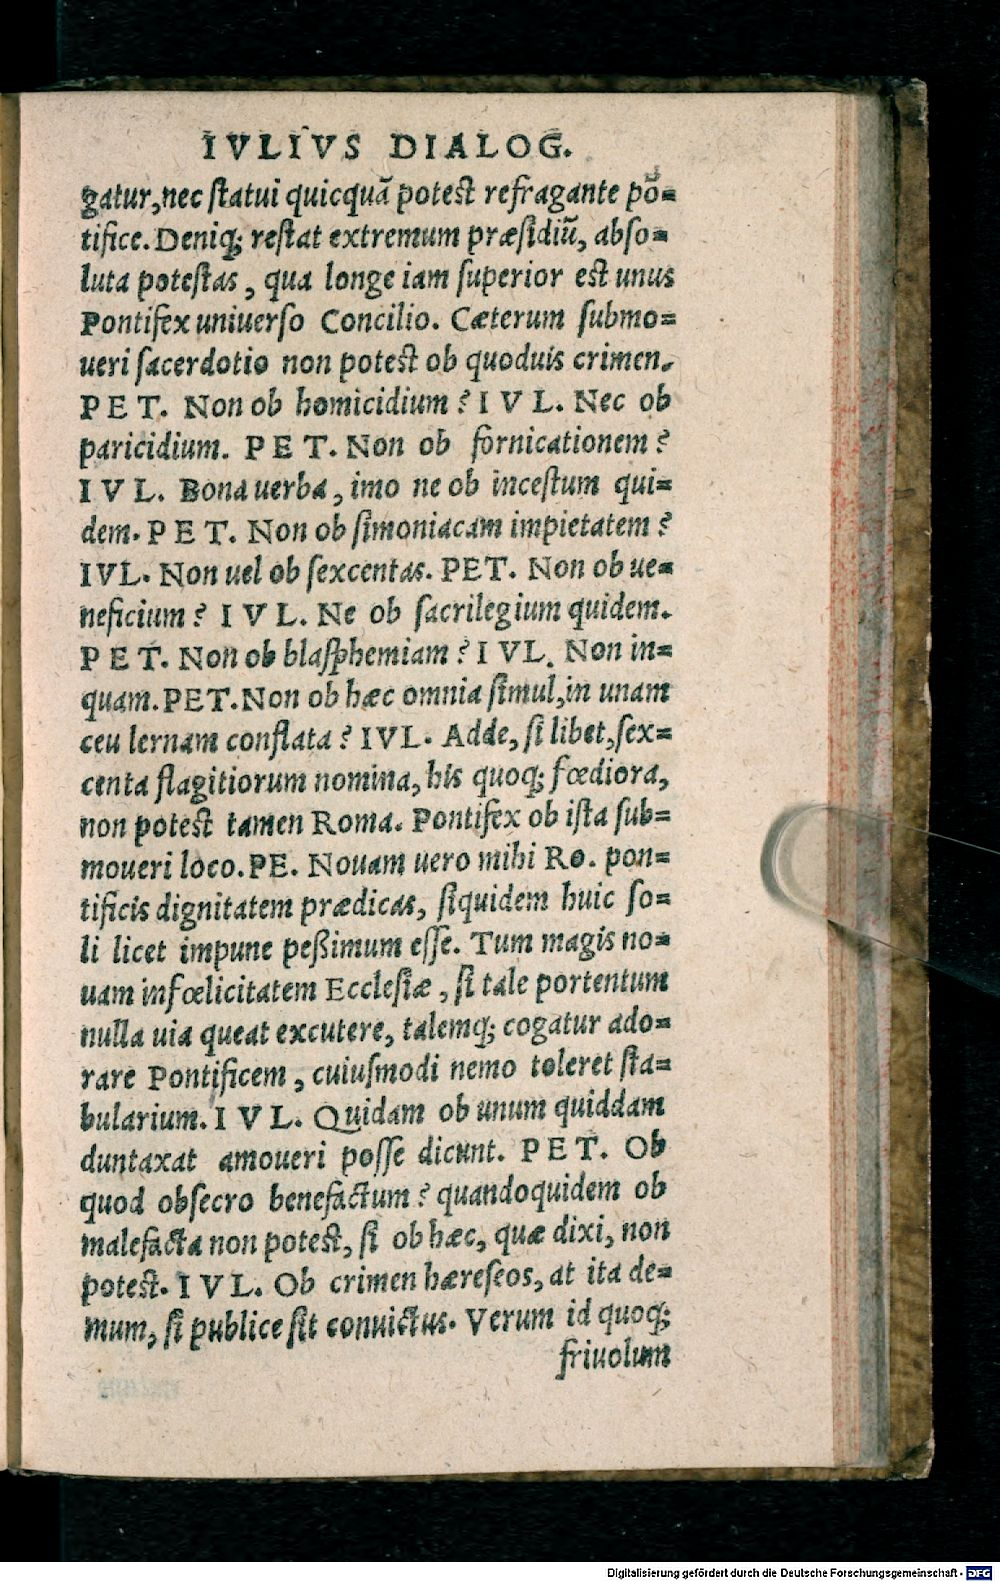 IVLIVS DIALOG.
gatur, nec ſtatui quicquā poteſt refragante pō=
tifice. Deniq; reſtat extremum præſidiū, abſo=
luta poteſtas, qua longe iam ſuperior eſt unus
Pontifex uniuerſo Concilio. Cæterum ſubmo=
ueri ſacerdotio non poteſt ob quoduis crimen.
PET. Non ob homicidium? IVL. Nec ob
paricidium. PET. Non ob fornicationem?
IVL. Bona uerba, imo ne ob inceſtum qui=
dem. PET. Non ob ſimoniacam impietatem?
IVL. Non uel ob ſexcentas. PET. Non ob ue=
neficium? IVL. Ne ob ſacrilegium quidem.
PET. Non ob blaſphemiam? IVL. Non in=
quam. PET. Non ob hæc omnia ſimul, in unam
ceu lernam conflata? IVL. Adde, ſi libet, ſex=
centa flagitiorum nomina, his quoq; fœdiora,
non poteſt tamen Roma. Pontifex ob iſta ſub=
moueri loco. PE. Nouam uero mihi Ro. pon=
tificis dignitatem prædicas, ſiquidem huic ſo=
li licet impune peßimum eſſe. Tum magis no=
uam infœlicitatem Eccleſiæ, ſi tale portentum
nulla uia queat excutere, talemq; cogatur ado=
rare Pontificem, cuiuſmodi nemo toleret ſta=
bularium. IVL. Quidam ob unum quiddam
duntaxat amoueri poſſe dicunt. PET. Ob
quod obſecro benefactum? quandoquidem ob
malefacta non poteſt, ſi ob hæc, quæ dixi, non
poteſt. IVL. Ob crimen hæreſeos, at ita de=
mum, ſi publice ſit conuictus. Verum id quoq;
friuolum
Digitalisierung gefördert durch die Deutsche Forschungsgemeinschaft - DFG